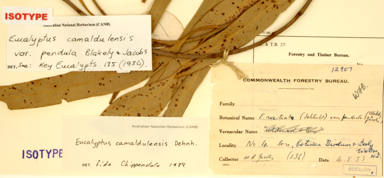 ISOTYPE
Australian National Herbarium (CANB)
Eucalyptus camaldulensis
var. pendula Blakely & Jacobs
Key Eucalypts 135 (1934)
Australian National Herbarium (CANB)
Eucalyptus camaldulensis Dehnh.
det. fide Chippendale 1988
ISOTYPE
Forestry and Timber Bureau.
12907
COMMONWEALTH FORESTRY BUREAU.
Family
Botanical Name E. rostrata var. pendula
Vernacular Name
Locality No 4.
Collector M R Jacobs (136) Date 4.8.31